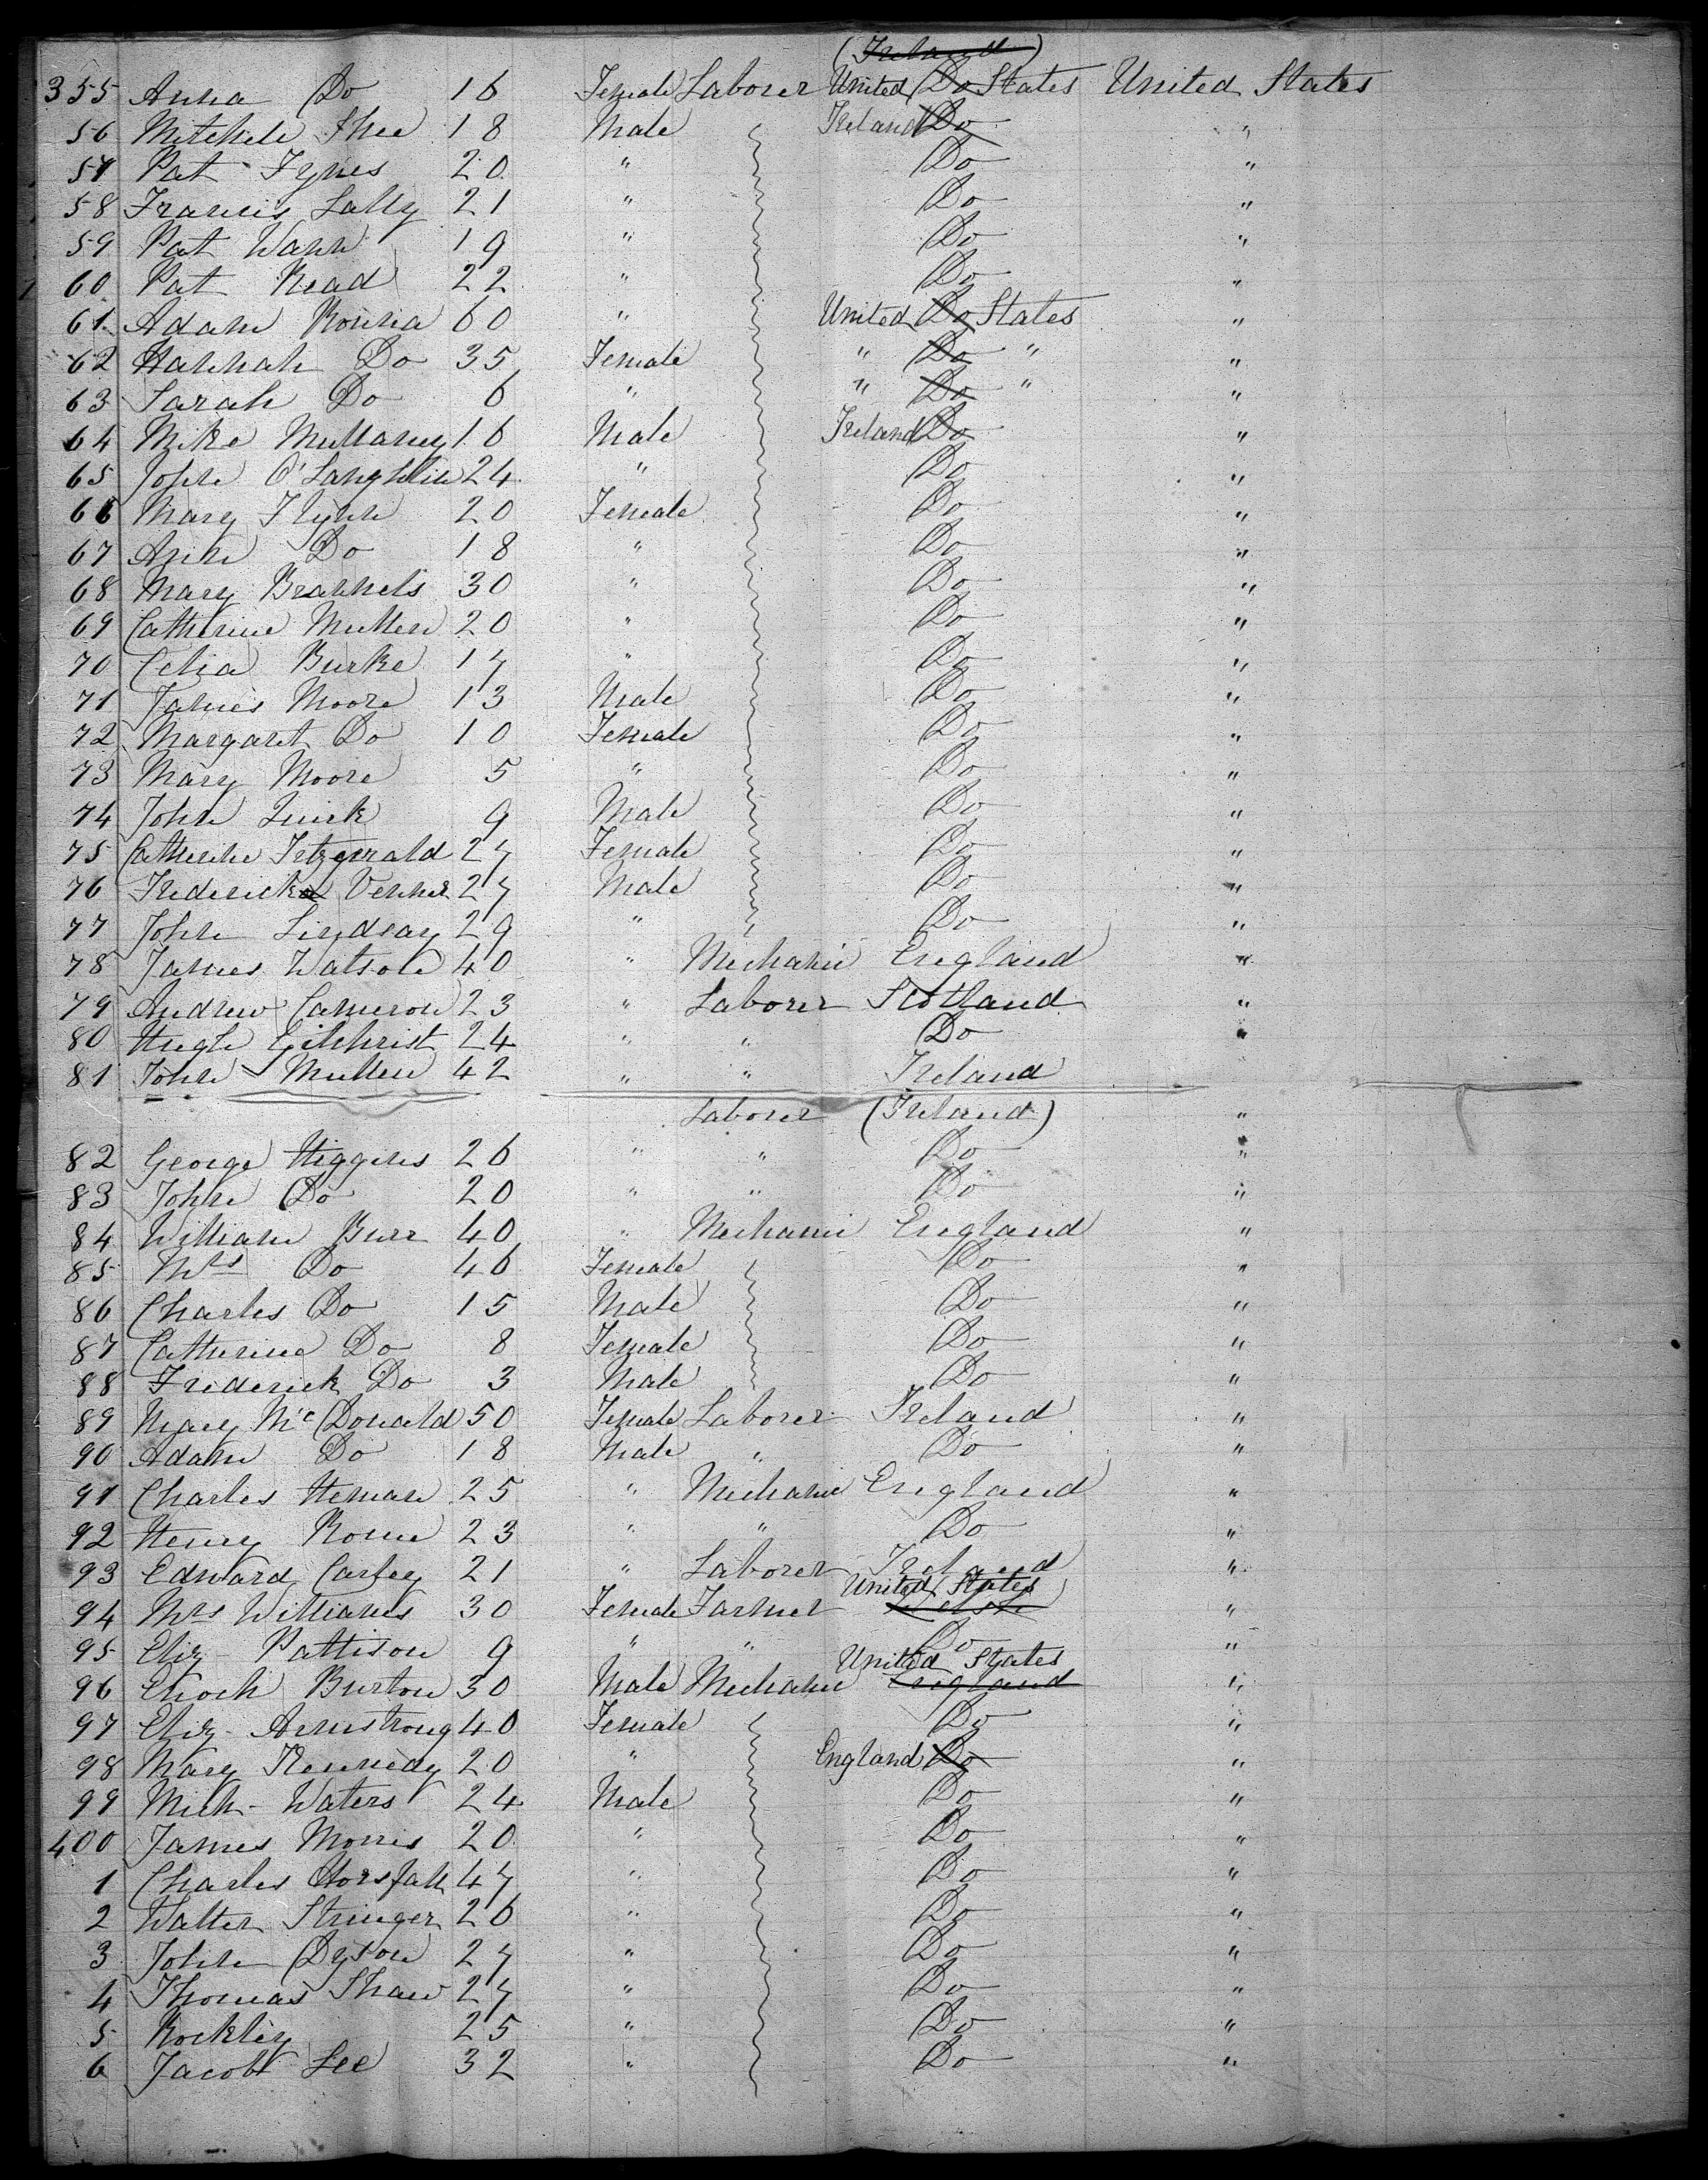 (Ireland)
355 Anna Do 16 Female Laborer United Do States United States
56 Mitchele Shee 18 Male Ireland Do "
57 Pat Fynes 20 " Do "
58 Francis Lally 21 " Do "
59 Pat Wann 19 " Do "
60 Pat Read 22 " Do "
61 Adam Rouna 60 " United Do States "
62 Hannah Do 35 Female " Do " "
63 Sarah Do 6 " " Do " "
64 Mike Mullaney 16 Male Ireland Do "
65 John O'Langhlin 24 " Do "
66 Mary Flynn 20 Female Do "
67 Ann Do 18 " Do "
68 Mary Brannels 30 " Do "
69 Catherine Mullen 20 " Do "
70 Celia Burke 17 " Do "
71 James Moore 13 Male Do "
72 Margaret Do 10 Female Do "
73 Mary Moore 5 " Do "
74 John Quirk 9 Male Do "
75 Catherine Fitzgerrald 27 Female Do "
76 Frederick Venner 27 Male Do "
77 John Lindsay 29 " Do "
78 James Watson 40 " Mechanic England "
79 Andrew Cameron 23 " Laborer Scotland "
80 Hugh Gilchrist 24 " " Do "
81 John Mullen 42 " " Ireland
Laborer (Ireland) "
82 George Higgins 26 " " Do "
83 John Do 20 " " Do "
84 William Burr 40 " Mechanic England "
85 Mrs Do 46 Female Do "
86 Charles Do 15 Male Do "
87 Catherine Do 8 Female Do "
88 Frederick Do 3 Male Do "
89 Mary McDonald 50 Female Laborer Ireland "
90 Adam Do 18 Male " Do "
91 Charles Heman 25 " Mechanic England "
92 Henry Rowe 23 " " Do "
93 Edward Carley 21 " Laborer Ireland "
United States
94 Mrs Williams 30 Female Farmer "
95 Eliz Pattison 9 " " Do "
United States
96 Enoch Burton 30 Male Mechanic England "
97 Eliz Armstrong 40 Female Do "
98 Mary Kennedy 20 " England Do "
99 Mich Waters 24 Male Do "
400 James Morris 20 " Do "
1 Charles Horsfall 47 " Do "
2 Walter Stringer 26 " Do "
3 John Dyson 27 " Do "
4 Thomas Shaw 27 " Do "
5 Rockley 25 " Do "
6 Jacob Lee 32 " Do "